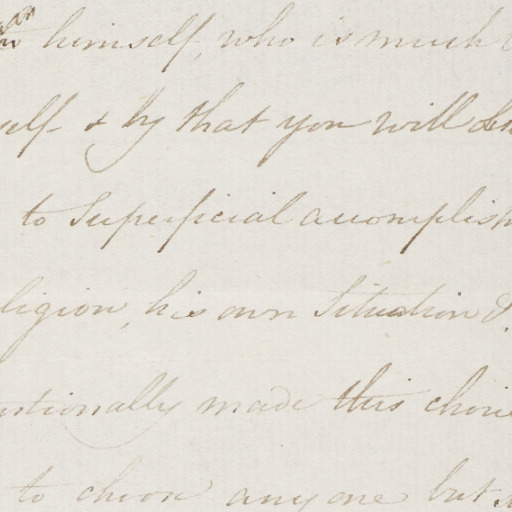 himself, who is much
self & by that you will
to Superficial accomplish
ligion, his own Situation &
made this choic
to choose any one but